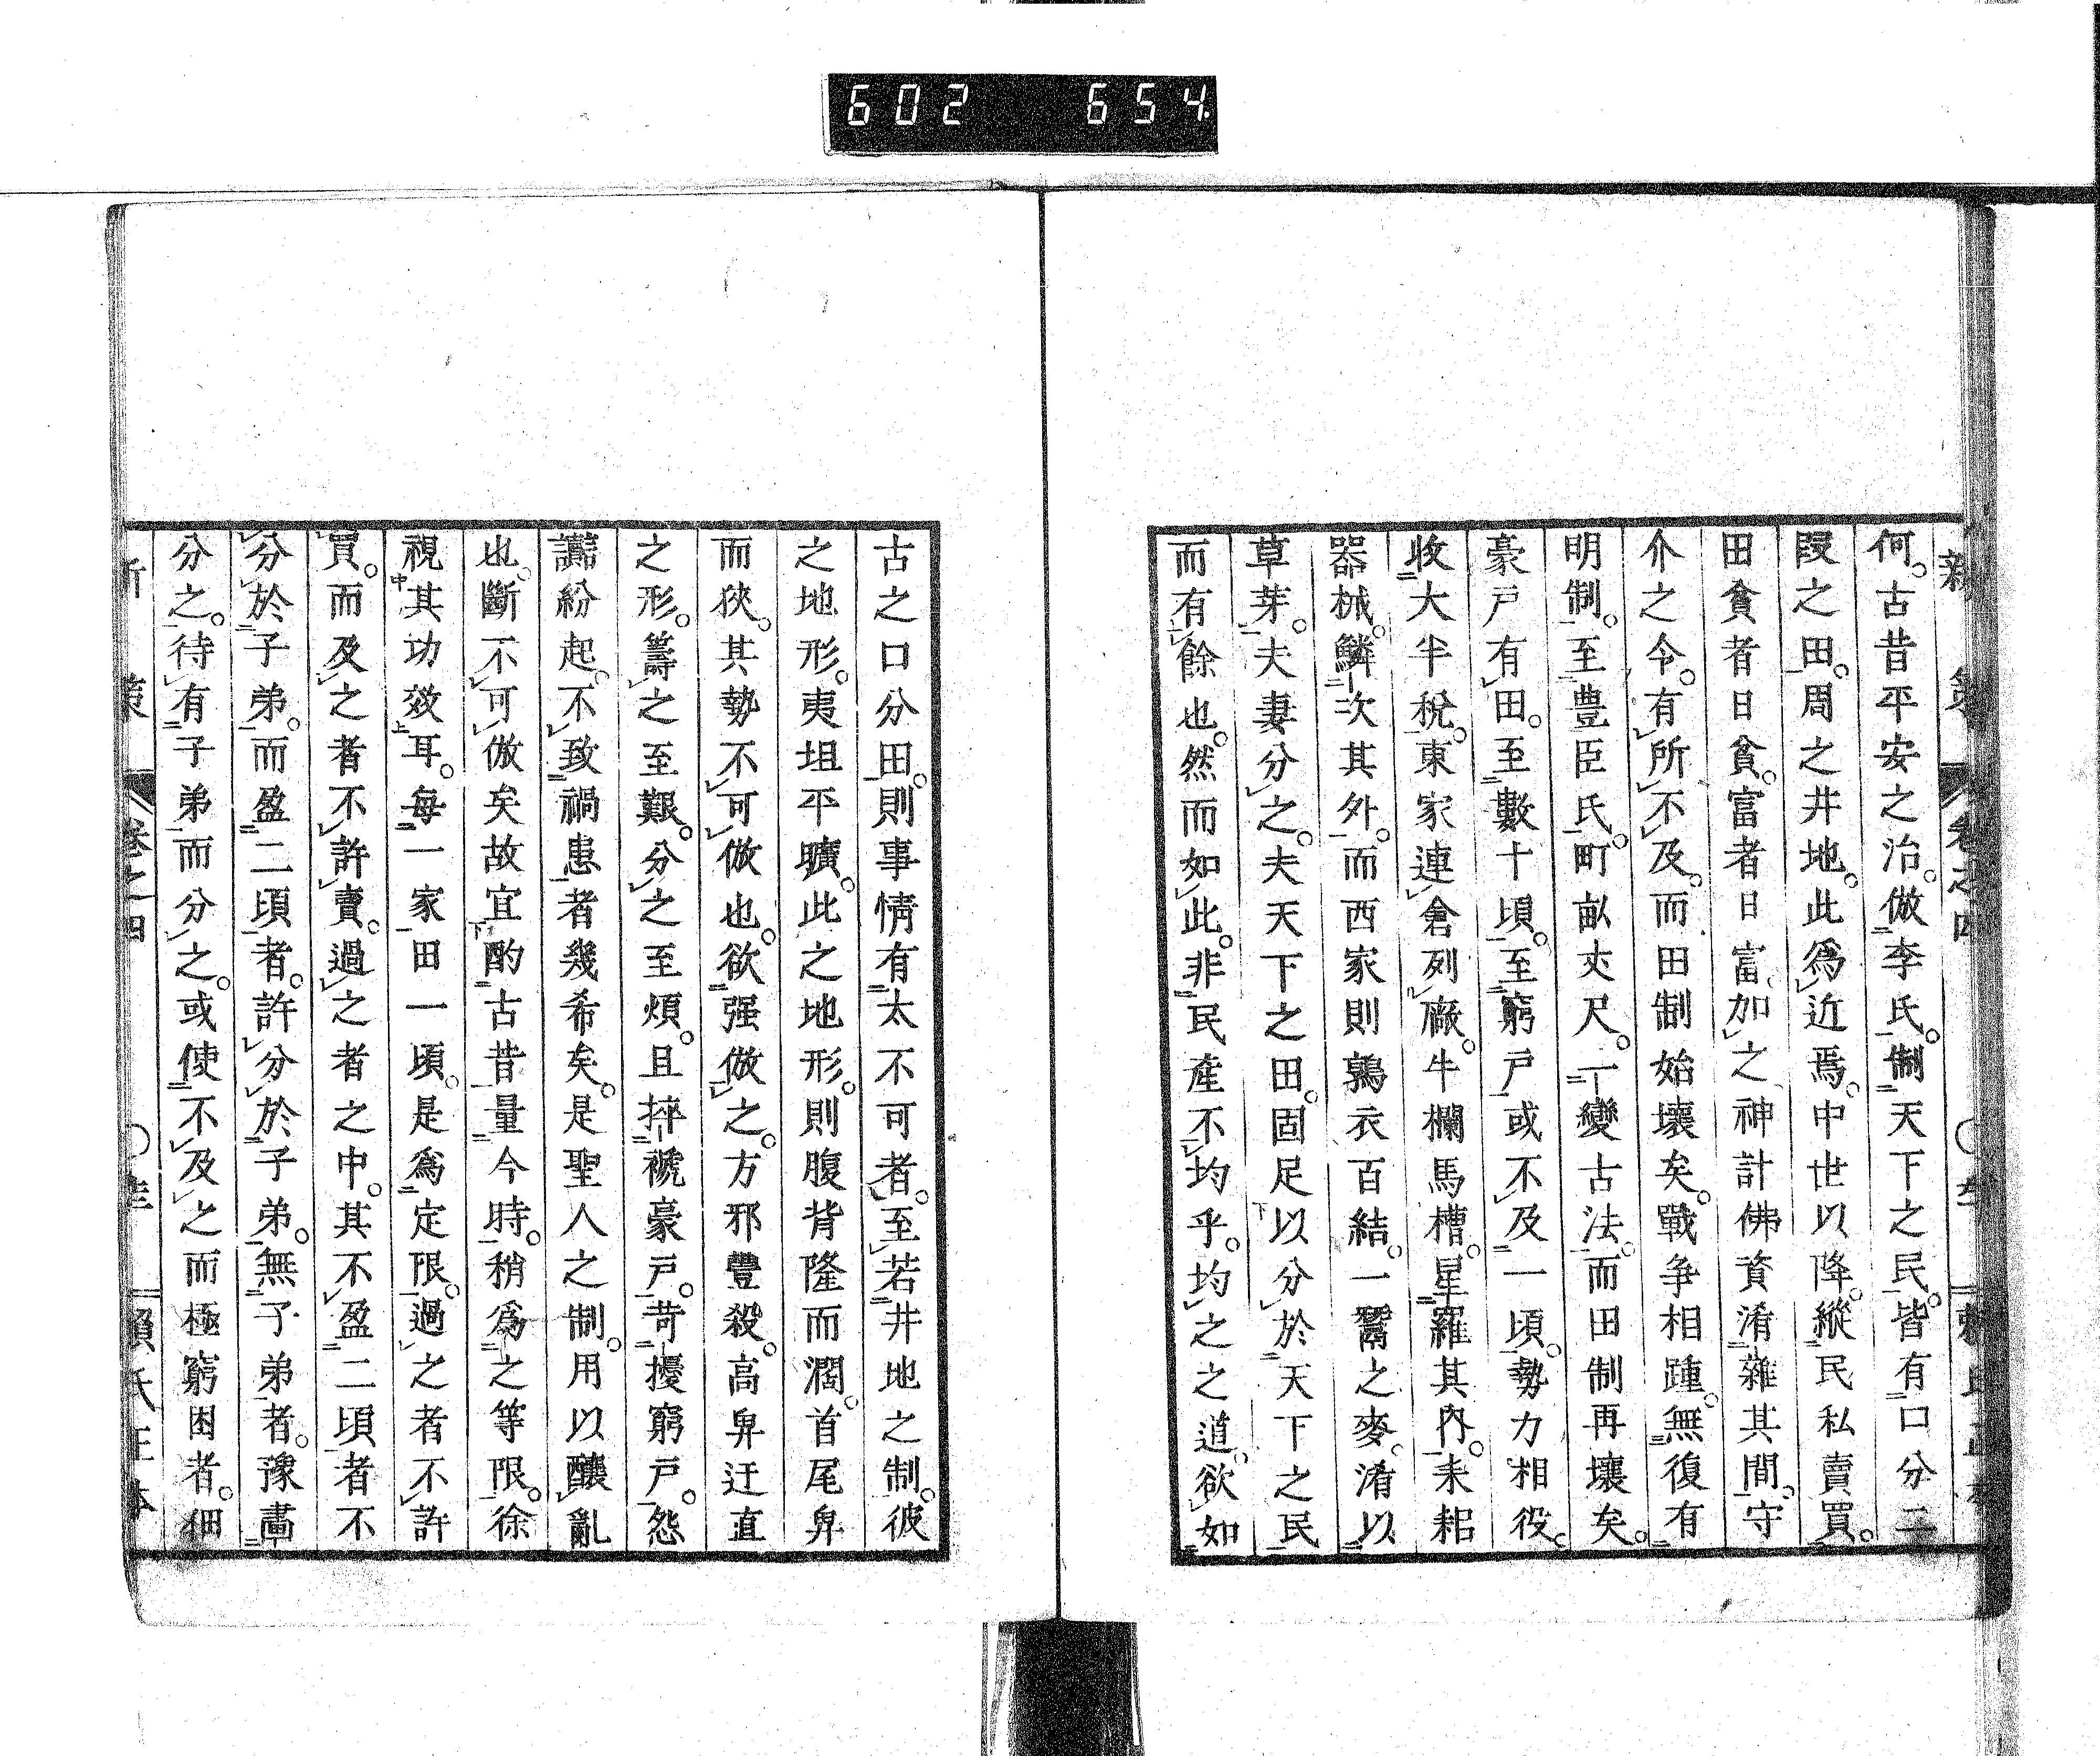 602 654
何。古昔平安之治。倣李氏。制天下之民。皆有口分二
段之田。周之井地。此為近焉。中世以降。縱民私賣買。
田貧者日貧。富者日富。加之神計佛資淆雜其間。守
介之令。有所不及。而田制始壞矣。戰争相踵。無復有
明制。至豊臣氏。町畝丈尺。一變古法。而田制再壞矣。
豪戸有田。至數十頃。至窮戸或不及一頃。勢力相役。
收大半稅。東家連倉列廠。牛欄馬槽。星羅其內。耒耜
器械。鱗次其外。而西家則鶉衣百結。一鬻之麥。淆以
草芽。夫妻分之。夫天下之田。固足以分於天下之民
而有餘也。然而如此。非民產不均乎。均之之道。欲如
古之口分田。則事情有太不可者。至若井地之制。彼
之地形。夷坦平曠。此之地形。則腹背隆而濶。首尾卑
而狹。其勢不可倣也。欲强倣之。方邪豐殺。高卑迂直
之形。籌之至艱。分之至煩。且捽褫豪戸。苛擾窮戸。怨
讟紛起。不致禍患者幾希矣。是聖人之制。用以釀亂
也。斷不可倣矣故宜酌古昔量今時。稍為之等限。徐
視其功效耳。每一家田一頃。是為定限。過之者不許
買。而及之者不許賣。過之者之中。其不盈二頃者不
分於子弟。而盈二頃者。許分於子弟。無子弟者。豫畫
分之。待有子弟而分之。或使不及之而極窮困者。佃
新 策 卷之四 賴氏正本